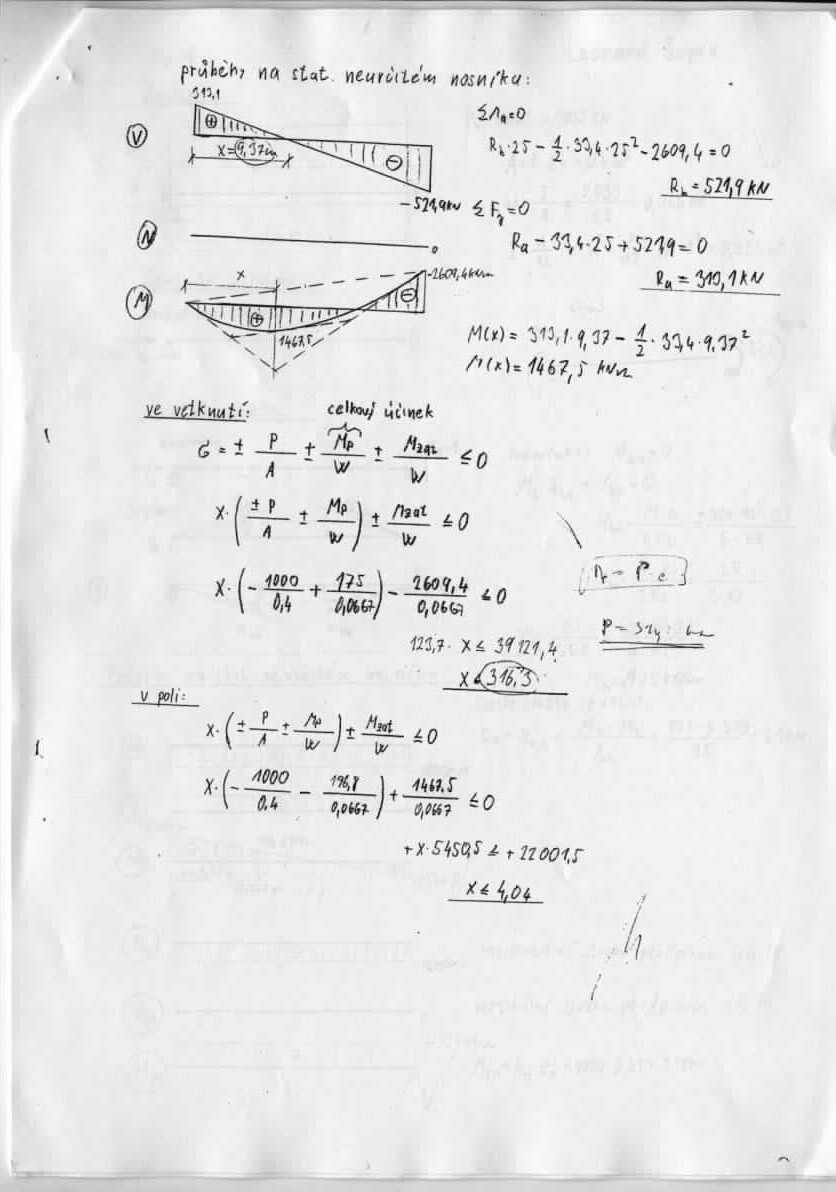 průběhy na stat. neurčitém nosníku:
313,1
⊕
V
x=9,37m
⊖
-521,9kN
ΣMa=0
Rb·25 - 1/2·33,4·25² - 2609,4 = 0
Rb = 521,9 kN
ΣFy=0
Ra - 33,4·25 + 521,9 = 0
Ra = 310,1 kN
N
0
M
x
-2609,4kNm
⊕
⊖
1467,5
M(x) = 313,1·9,37 - 1/2·33,4·9,37²
M(x) = 1467,5 kNm
ve vetknutí:
celkový účinek
σ = ± P/A ± Mp/W ± Mzat/W ≤ 0
x·(±P/A ± Mp/W) ± Mzat/W ≤ 0
x·(-1000/0,4 + 175/0,0667) - 2609,4/0,0667 ≤ 0
M = P·e
123,7·x ≤ 39121,4
x ≤ 316,3
v poli:
x·(±P/A ± Mp/W) ± Mzat/W ≤ 0
x·(-1000/0.4 - 196,8/0,0667) + 1467.5/0,0667 ≤ 0
+x·5450,5 ≤ +22001,5
x ≤ 4,04